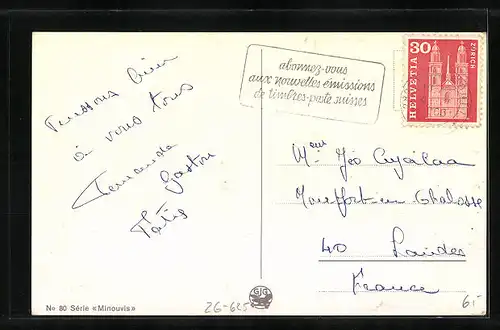 Pensons bien
à vous tous
Fernande
Gaston
abonnez-vous
aux nouvelles émissions
de timbres-poste suisses
30
HELVETIA
ZÜRICH
Mme Géo
Montfort-en-Chalosse
40 Landes
France
No 80 Série «Minouvis»
26-625
6.-